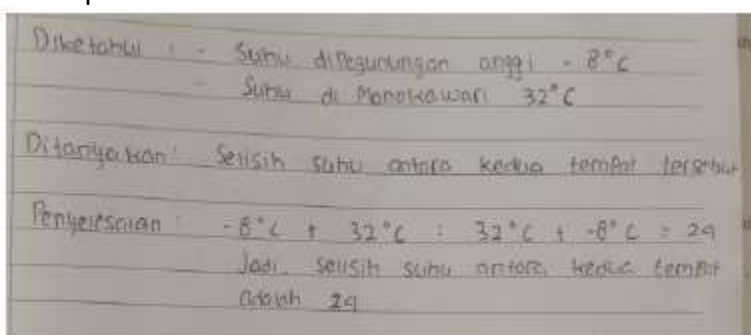 Diketahui : - Suhu di Pegunungan anggi - 8°C
- Suhu di Manokawari 32°C
Ditanyakan : Selisih suhu antara kedua tempat tersebut
Penyelesaian : -8°C + 32°C = 32°C + -8°C = 24
Jadi, selisih suhu antara kedua tempat
adalah 24